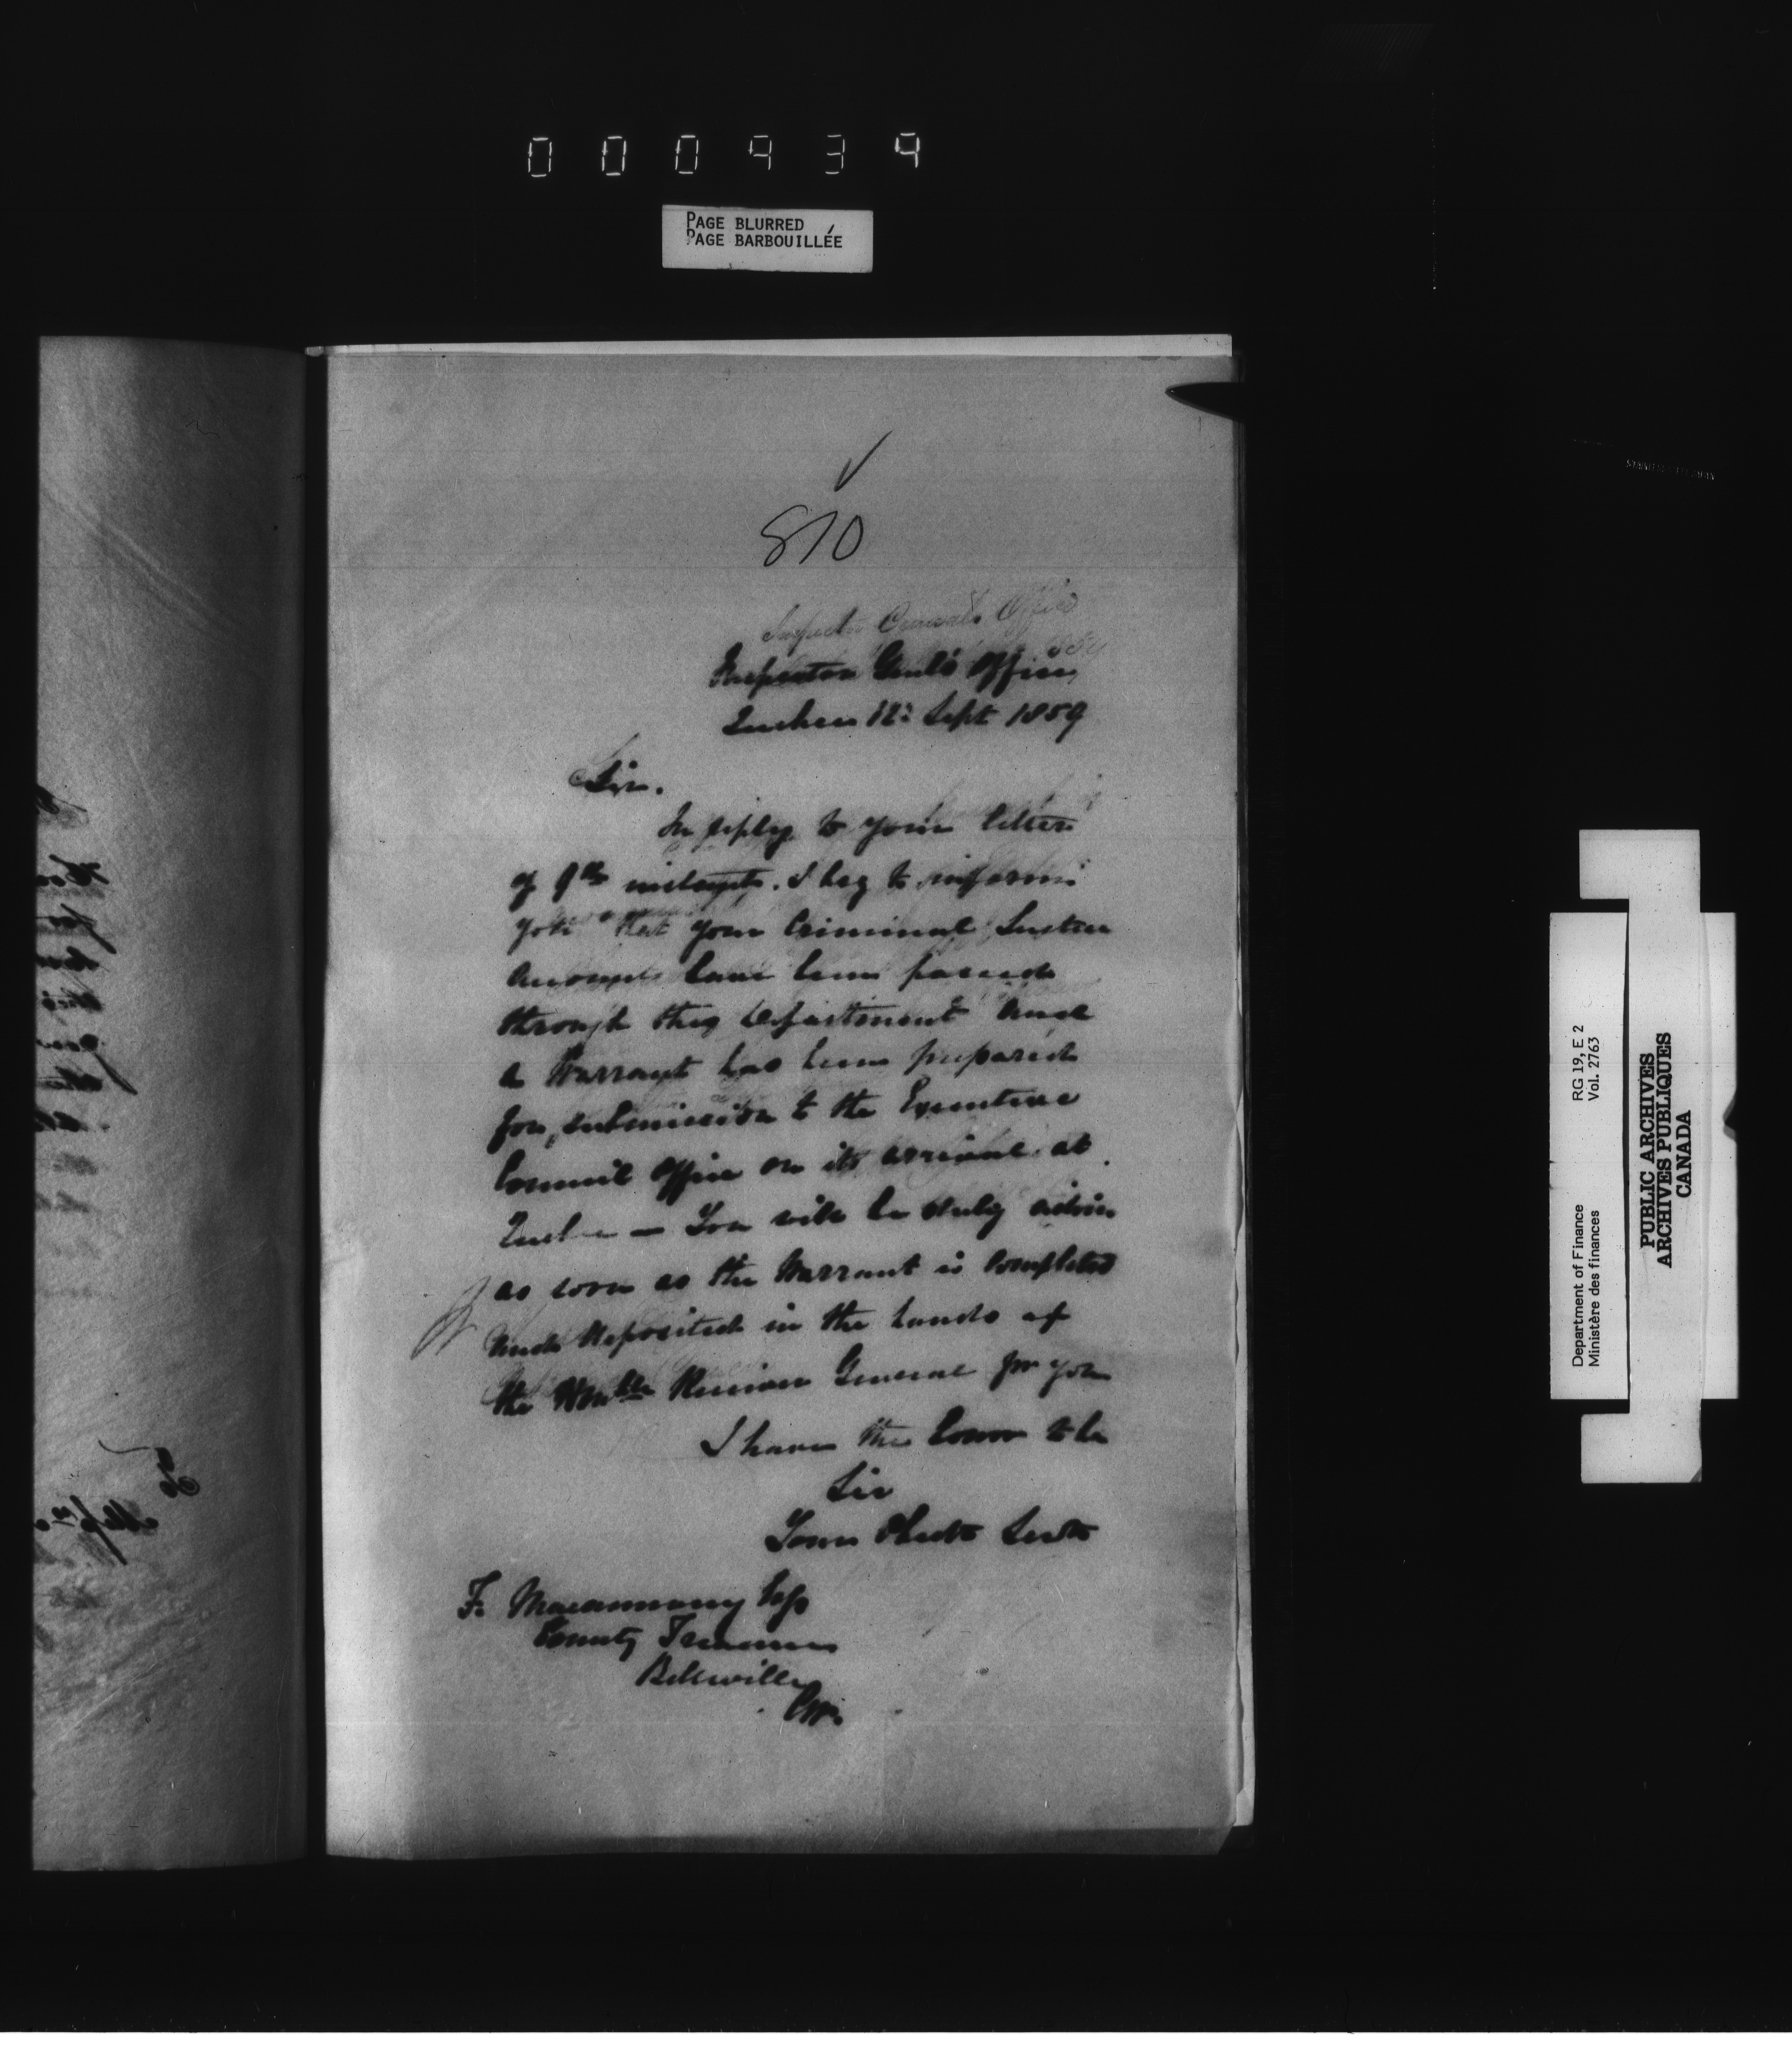 000434
PAGE BLURRED
PAGE BARBOUILLÉE
810
Inspector Generals Office
Inspector Genl's Office
Quebec 12: Sept 1859
Sir.
In reply to your letter
of 9th instant. I beg to inform
you that your Criminal Justice
Accounts have been passed
through this Department and
a Warrant has been prepared
for submission to the Executive
Council Office on its arrival at
Quebec — You will be duly
as soon as the Warrant is completed
and deposited in the hands of
the Honble Receiver General for you
I have the honor to be
Sir
Your Obedt Servt
F. Macannany Esq
County Treasurer
Belleville
CW.
Department of Finance RG 19, E 2
Ministère des finances Vol. 2763
PUBLIC ARCHIVES
ARCHIVES PUBLIQUES
CANADA